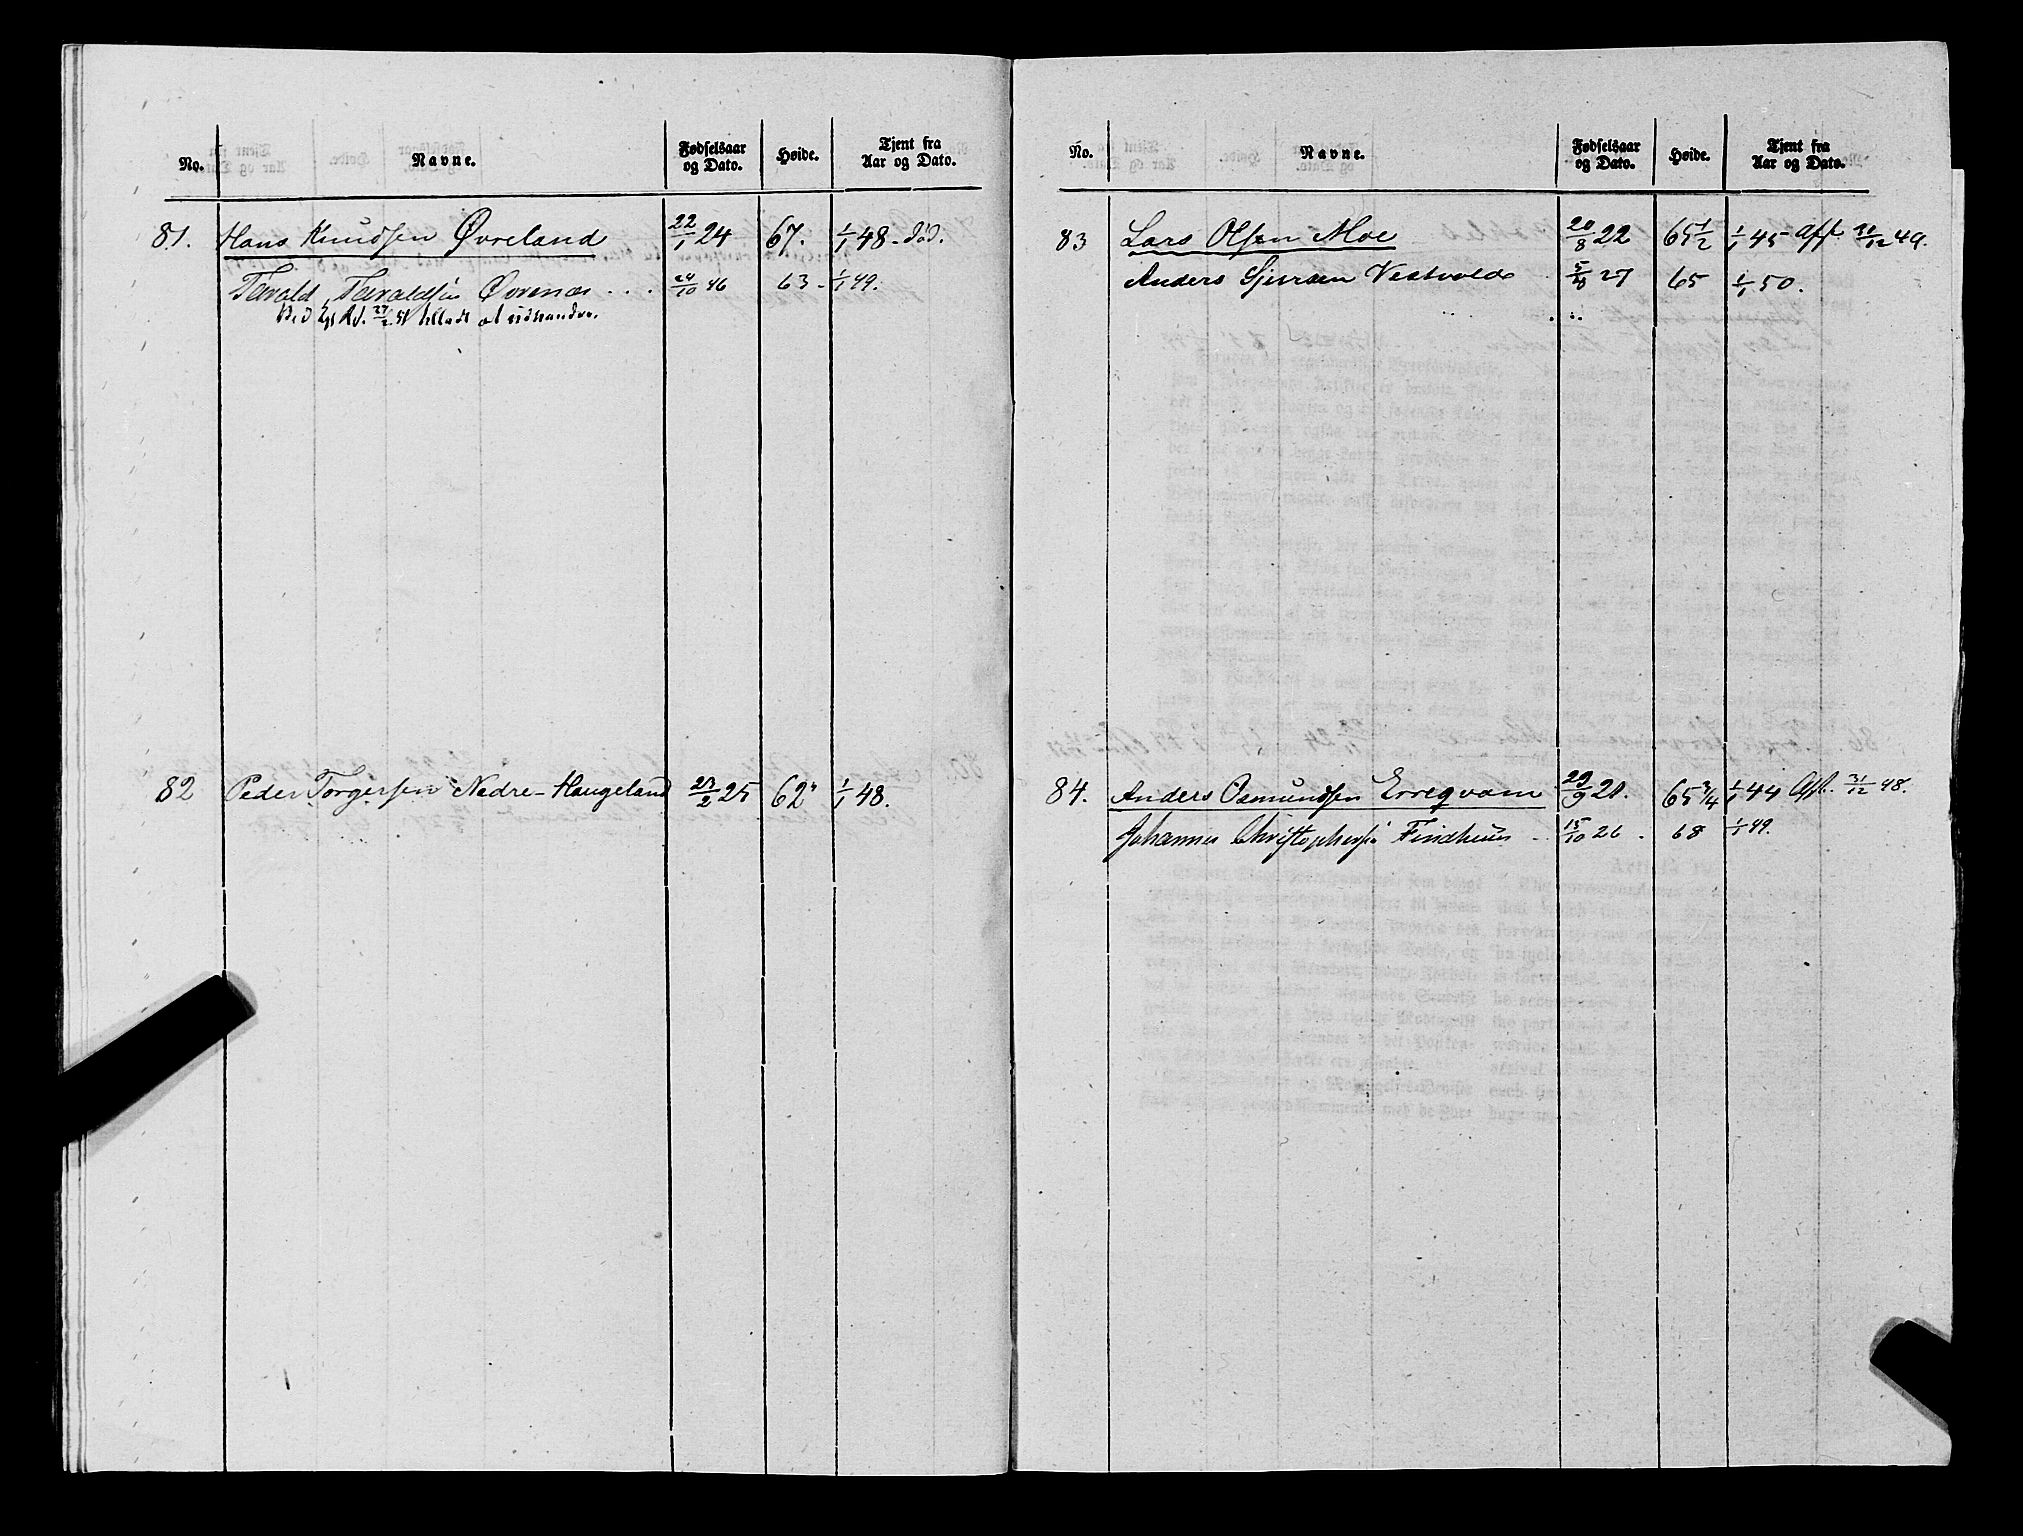 No. Navne. Fødselsaar og Dato. Høide. Tjent fra Aar og Dato.
81. Hans Knudsen Øvreland 22/1 24 67. 1/1 48 - død.
Tarald Taraldsen Øvrenæs . . . 24/10 26 63 - 1/1 49.
27/2 51 tilladt at udvandre.
82 Peder Torgersen Nedre-Haugeland 23/2 25 62" 1/1 48.
No. Navne. Fødselsaar og Dato. Høide. Tjent fra Aar og Dato.
83 Lars Olsen Moe 20/8 22 65 1/2 1/1 45 Afsk. 31/12 49.
Anders Sjursen Vestvold 27 65 1/1 50.
84. Anders Osmundsen Erreqvam 29/9 21. 65 3/4 1/1 44 Afsk. 31/12 48.
Johannes Christophersen 15/10 26 - 68 1/1 49.